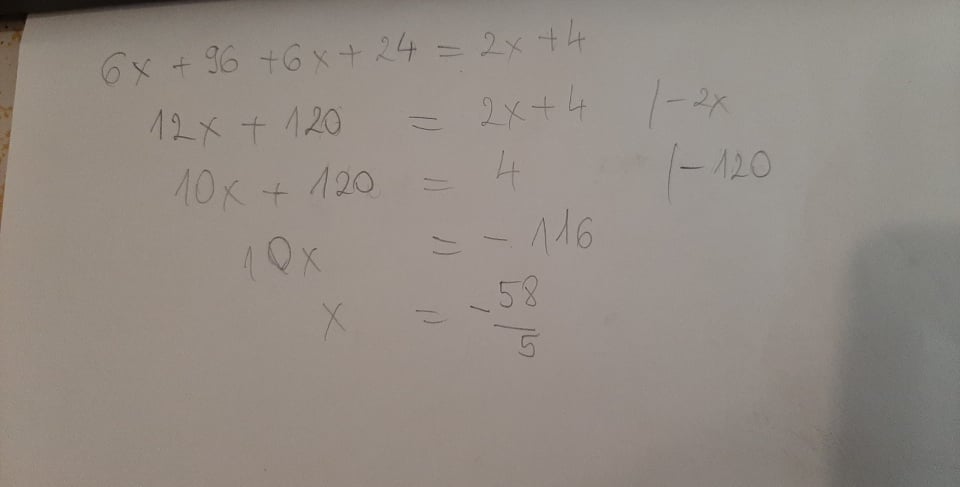 6x + 96 + 6x + 24 = 2x + 4
12x + 120 = 2x + 4 /-2x
10x + 120 = 4 /-120
10x = - 116
x = - 58/5